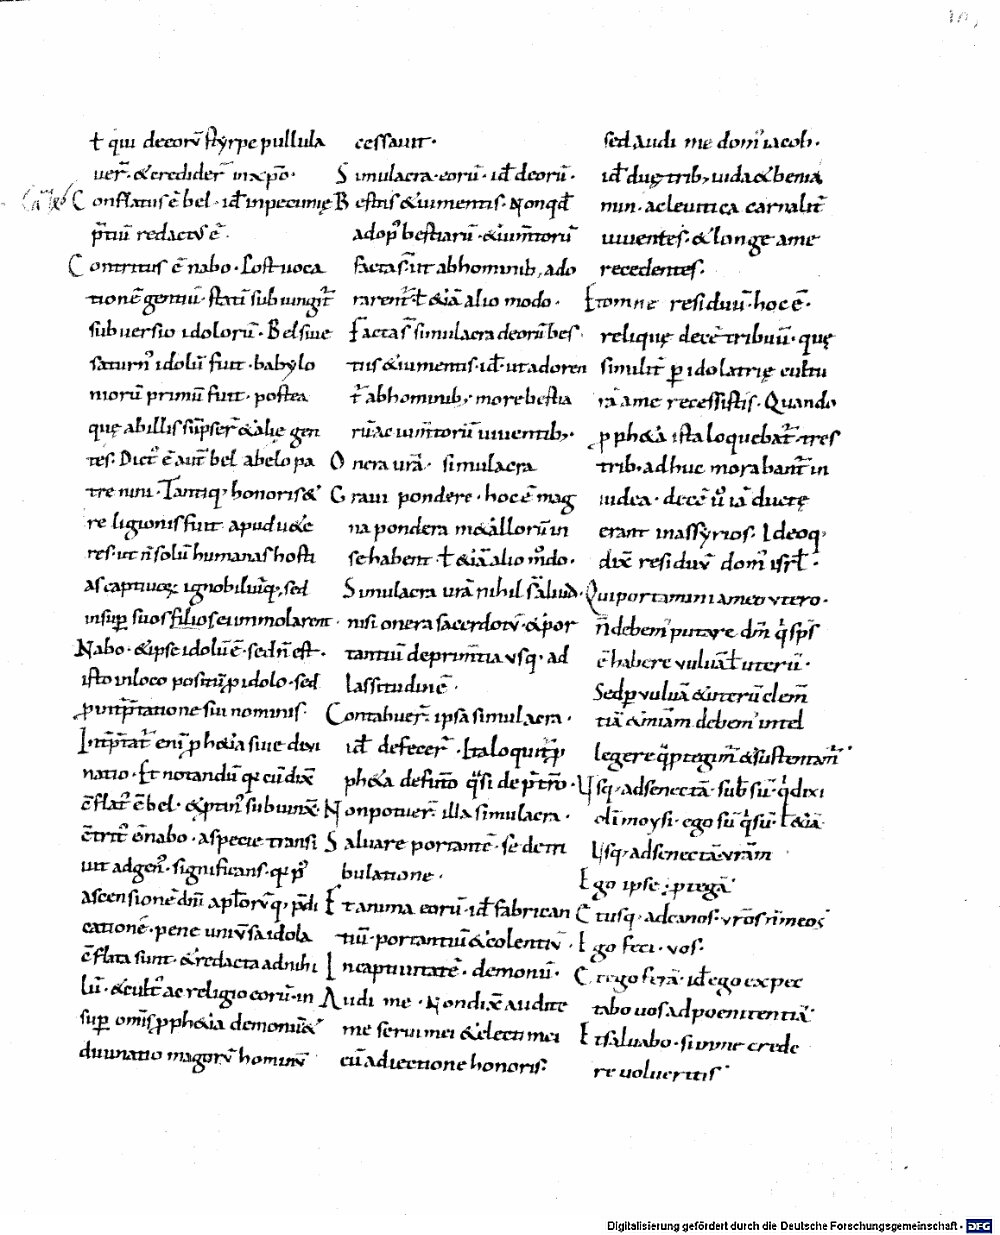 ł qui decorū styrpe pullula
uer̄. & credider̄ in xp̄o.
Conflatus ē bel. id̄ in pecunię
p̄tiū redactus ē.
Contritus ē nabo. Post uoca
tionē gentiū. statī subiungit̄
subuersio idolorū. Bel siue
saturn' idolū fuit. babylo
niorū primū fuit. postea
quę ab illis sūpser̄ & alię gen
tes. Dict' ē aut̄ bel a belo pa
tre nini. Tantiq; honoris &
religionis fuit apud uete
res. ut n̄ solū humanas hosti
as captiuoꝝ ignobiliūq;, sed
insup̄ suos filios ei immolarent.
Nabo. & ipse idolū ē. sed n̄ est.
isto in loco positū p̄ idolo. sed
ꝓ int̄p̄tatione sui nominis.
Int̄p̄tat̄ enī ꝓph&ia siue diui
natio. Et notandū qꝫ cū dix̄
cēflat' ē bel. & p̄tin' subiunx̄.
cētrit' ē nabo. a specie transi
uit ad gen'. significans. qꝫ p'
ascensionē dn̄i aptōrūq; p̄di
cationē. pene uniūsa idola
cēflata sunt. & redacta ad nihi
lū. & cult' ac religio eorū. in
sup̄ om̄is ꝓph&ia demoniū &
diuinatio magorū hominū
cessauit.
Simulacra eorū. id̄ deorū.
Bestiis & iumentis. Nonqd̄
ad op' bestiarū. & ium̄torū
facta s̄. ut ab hominib; ado
rarent̄. ł & iā alio modo.
Facta s̄ simulacra deorū bes
tiis & iumentis. id̄. ut adoren
t̄ ab hominib;. more bestia
rū ac ium̄torū uiuentib;.
Onera urā. simulacra
Graui pondere. hoc ē mag
na pondera m&allorū in
se habent. ł & iā alio m̊do.
Simulacra urā nihil s̄ aliud.
nisi onera sacerdotū. & por
tantiū deprim̄tia usq; ad
lassitudinē.
Contabuer̄. ipsa simulacra.
id̄ defecer̄. Ita loquit̄ ꝓ
ph&a defut̄o q̄si de p̄t̄ito.
Non potuer̄ illa simulacra.
Saluare portantē. se dem
bulatione.
Et anima eorū. id̄ fabrican
tiū. portantiū & colentiū.
In captiuitatē. demonū.
Audi me. Non dix̄ audite
me serui mei & electi mei
cū adiectione honoris.
sed, audi me dom' iacob.
id̄ duę trib; iuda & benia
min. ac leuitica carnalit̄
uiuentes. & longe a me
recedentes.
Et omne residuū. hoc ē.
relique decē tribuū. quę
similit̄ p̄ idolatrię cultu
rā a me recessistis. Quando
ꝓph&a ista loquebat̄. tres
trib; adhuc morabant̄ in
iudea. decē ů iā ductę
erant in assyrios. Ideoq;
dix̄ residuū dom' isrl̄.
Qui portamini a meo utero.
n̄ debem' putare dm̄ qi sps̄
ē habere vuluā ł uterū.
Sed p̄ vuluā & uterū clem̄
tiā & miām debem' intel
legere qa p̄tegim̄ & sustentam̄
Usq; ad senectā. sub. sū. qd̄ dixi
oli moysi. ego sū qi sū. ł & iā
Usq; ad senectā urām
Ego ipse. ꝓtegā.
Et usq; ad canos. uros n̄ meos
Ego feci. vos.
Et ego ferā. id̄ ego expec
tabo uos ad poenitentiā.
Et saluabo. si in me crede
re uolueritis.
Digitalisierung gefördert durch die Deutsche Forschungsgemeinschaft - DFG